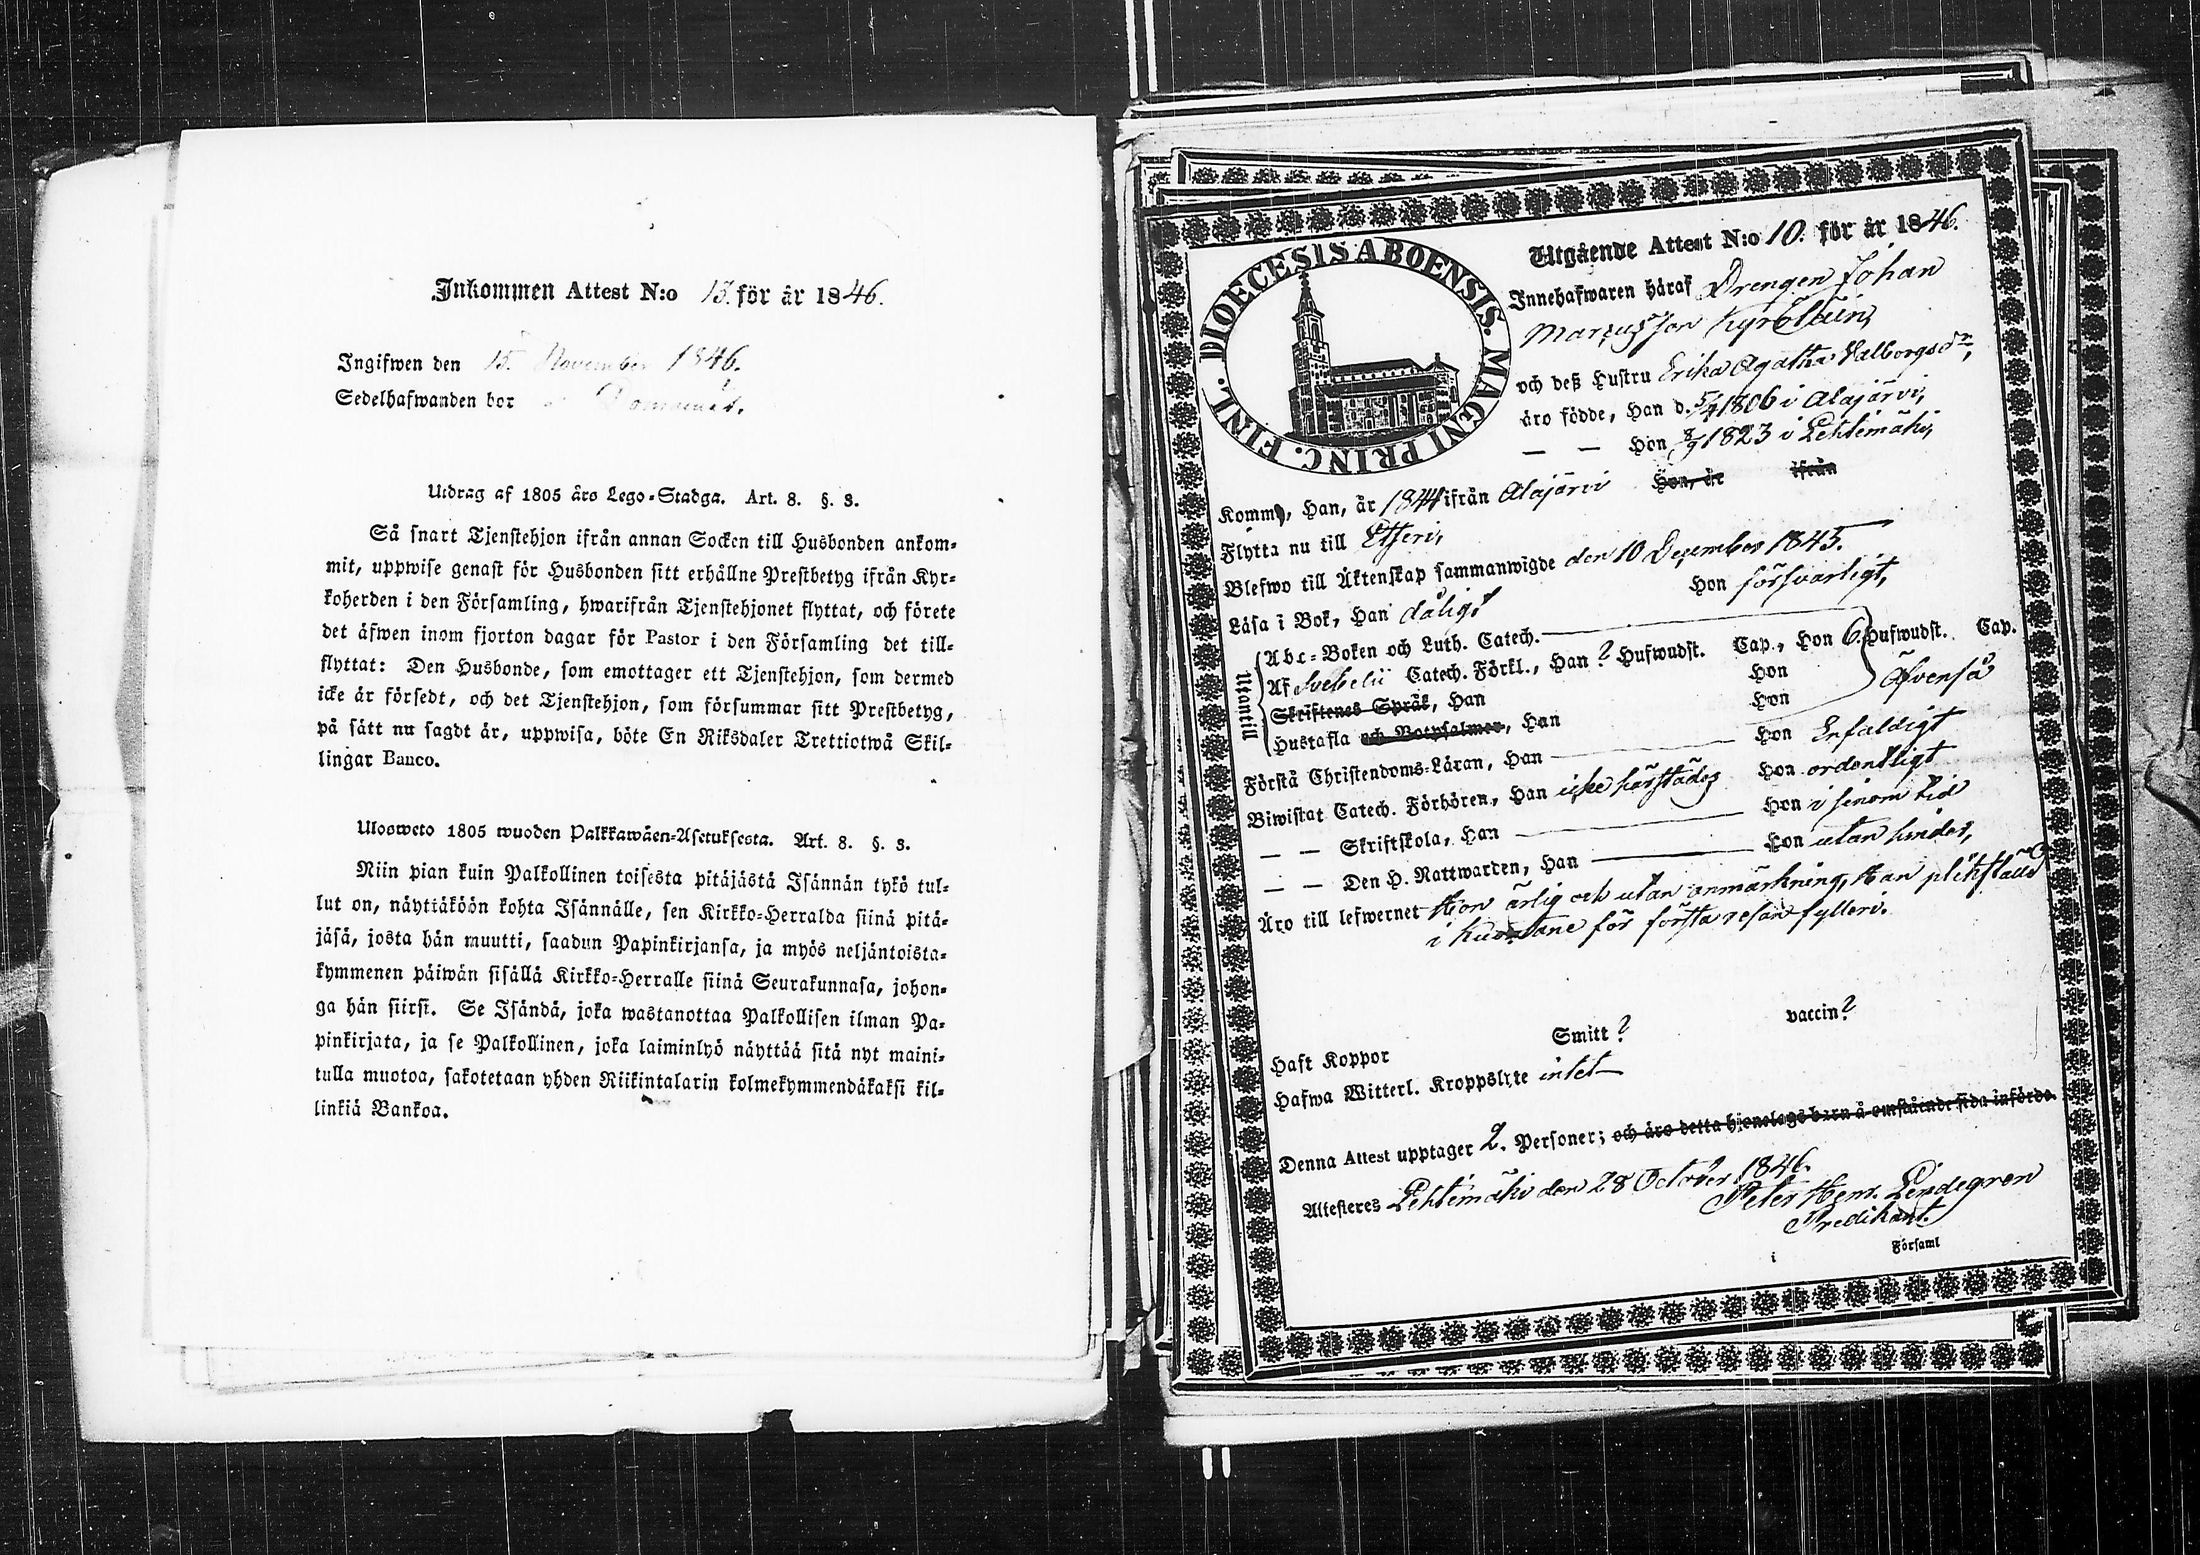 Inkommen Attest N:o 15. för år 1846.
Ingifwen den 15. November 1846.
Sedelhafwanden bor
Utdrag af 1805 års Lego-Stadga. Art. 8. §. 3.
Så snart Tjenstehjon ifrån annan Socken till Husbonden ankom-
mit, uppwise genast för Husbonden sitt erhållne Prestbetyg ifrån Kyr-
koherden i den Församling, hwarifrån Tjenstehjonet flyttat, och förete
det äfwen inom fjorton dagar för Pastor i den Församling det till-
flyttat: Den Husbonde, som emottager ett Tjenstehjon, som dermed
icke är försedt, och det Tjenstehjon, som försummar sitt Prestbetyg,
på sätt nu sagdt är, uppwisa, böte En Riksdaler Trettiotwå Skil-
lingar Banco.
Ulosweto 1805 wuoden Palkkawäen-Asetuksesta. Art. 8. §. 3.
Niin pian kuin Palkollinen toisesta pitäjästä Isännän tykö tul-
lut on, näyttäköön kohta Isännälle, sen Kirkko-Herralda siinä pitä-
jäsä, josta hän muutti, saadun Papinkirjansa, ja myös neljäntoista-
kymmenen päiwän sisällä Kirkko-Herralle siinä Seurakunnasa, johon-
ga hän siirsi. Se Isändä, joka wastanottaa Palkollisen ilman Pa-
pinkirjata, ja se Palkollinen, joka laiminlyö näyttää sitä nyt maini-
tulla muotoa, sakotetaan yhden Riikintalarin kolmekymmendäkaksi kil-
linkiä Bankoa.
DIOECESIS ABOENSIS. MAGNI PRINC. FINL.
Utgående Attest N:o 10. för år 1846.
Innehafwaren häraf Drengen Johan
Marcusson Kyrölain,
och deß Hustru Erika Agatha Valborgsdr,
äro födde, Han d. 5/4 1806 i Alajärvi,
— — Hon 8/9 1823 i Lehtimäki,
Komm, Han, år 1844 ifrån Alajärvi Hon, år ifrån
Flytta nu till Etseri,
Blefwo till Äktenskap sammanwigde den 10 December 1845.
Läsa i Bok, Han dåligt Hon försvarligt,
Utantill
Abc-Boken och Luth. Catech.
Af Svebelii Catech. Förkl., Han ? Hufwudst. Cap., Hon 6. Hufwudst. Cap.
Skriftenes Språk, Han Hon Äfvenså
Hustafla och Botpsalmer, Han Hon
Förstå Christendoms-Läran, Han Hon Enfaldigt
Biwistat Catech. Förhören, Han icke härstädes Hon ordentligt
— — Skriftskola, Han Hon i sinom tid
— — Den H. Nattwarden, Han Hon utan hinder,
Äro till lefwernet Hon ärlig och utan anmärkning, Han
i Kuortane för första resan fylleri.
Haft Koppor Smitt? vaccin?
Hafwa Witterl. Kroppslyte intet
Denna Attest upptager 2. Personer; och äro detta hjonelags barn å omstående sida införde.
Attesteres Lehtimäki den 28 October 1846.
Peter Hem. Lindegren
Predikant.
i Församl